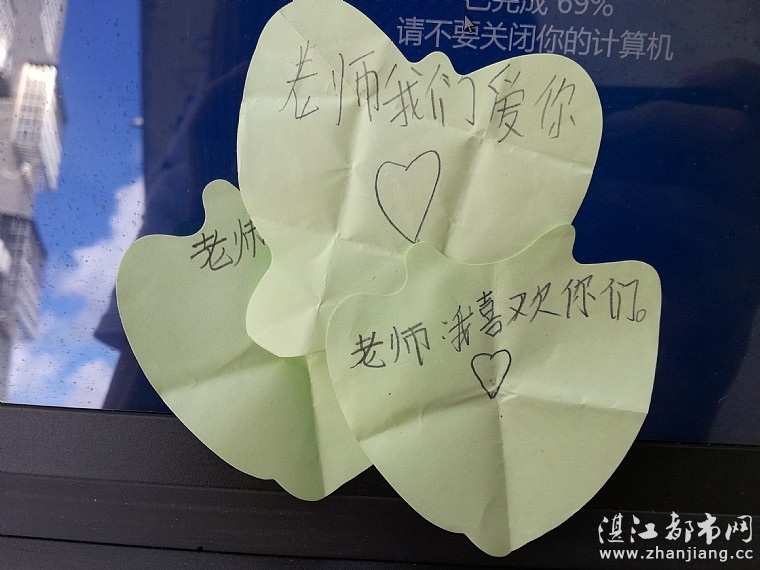 已完成 69%
请不要关闭你的计算机
老师我们爱你
老师
老师我喜欢你们。
湛江都市网
www.zhanjiang.cc